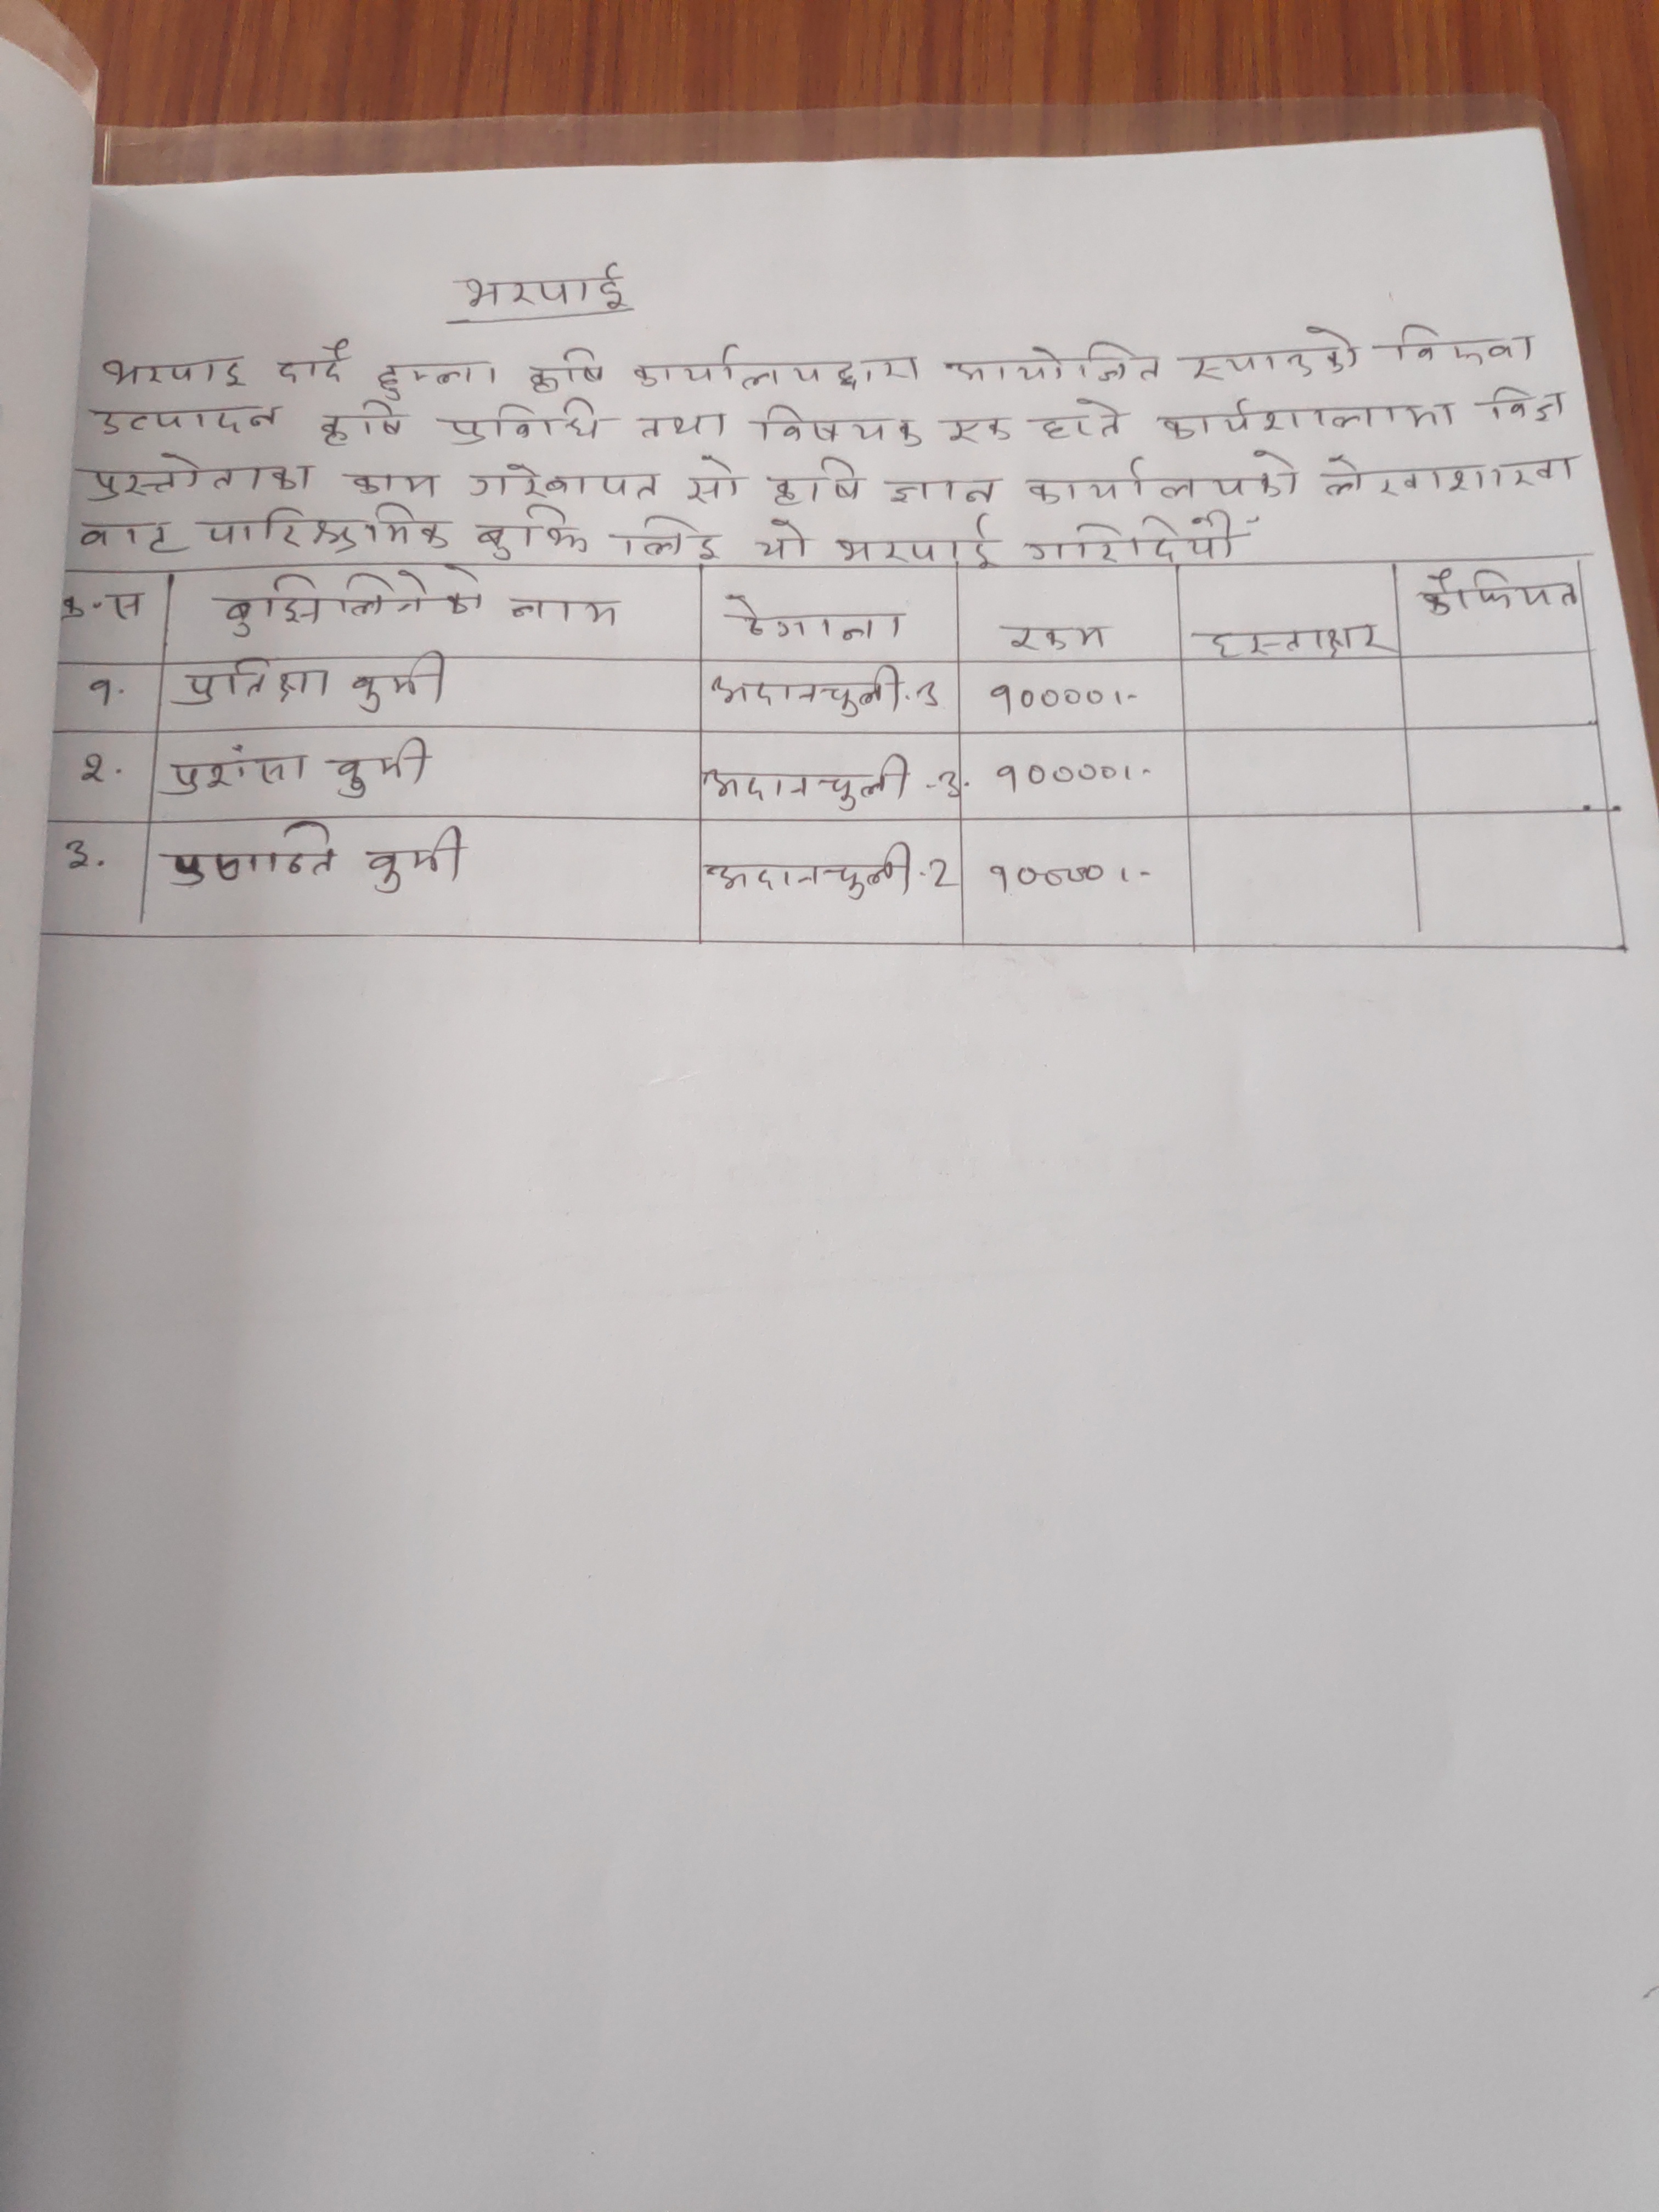 भरपाई
भरपाइ दादै हुम्ला कृषि कार्यालयद्वारा आयोजित स्याउको विरुवा
उत्पादन कृषि प्रविधि तथा विषयक एक हाते कार्यशालामा विज्ञ
प्रस्तोताका काम गरेवापत सो कृषि ज्ञान कार्यालयको लेखाशाखा
वाट पारिश्रमिक बुझि लिइ यो भरपाई गरिदियौं
क.स बुझिलिनेको नाम ठेगाना रकम हस्ताक्षर कैफियत
१. प्रतिक्षा बुर्मी अदानचुली.3 १००००।-
२. प्रशंसा बुर्मी अदानचुली-३. १००००।-
३. बुर्मी अदानचुली.2 १००००।-